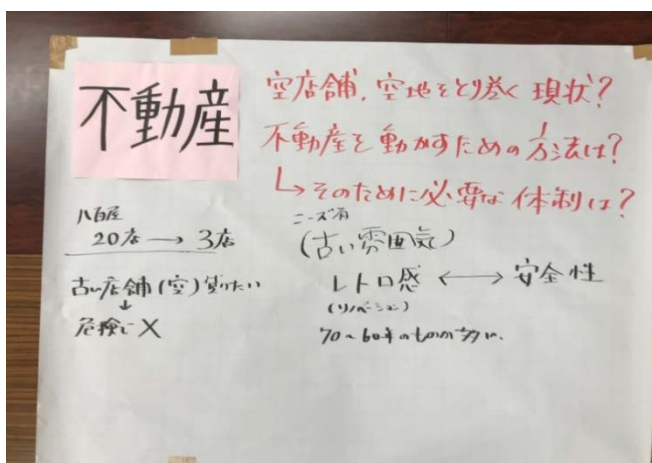 不動産
空店舗、空地をとり巻く現状?
不動産を動かすための方法は?
↳そのために必要な体制は?
八百屋
20店→3店
古い店舗(空)借りたい
↓
危険で×
ニーズ有
(古い雰囲気)
レトロ感 ←→ 安全性
(リノベーション)
70~60年のものが多い。